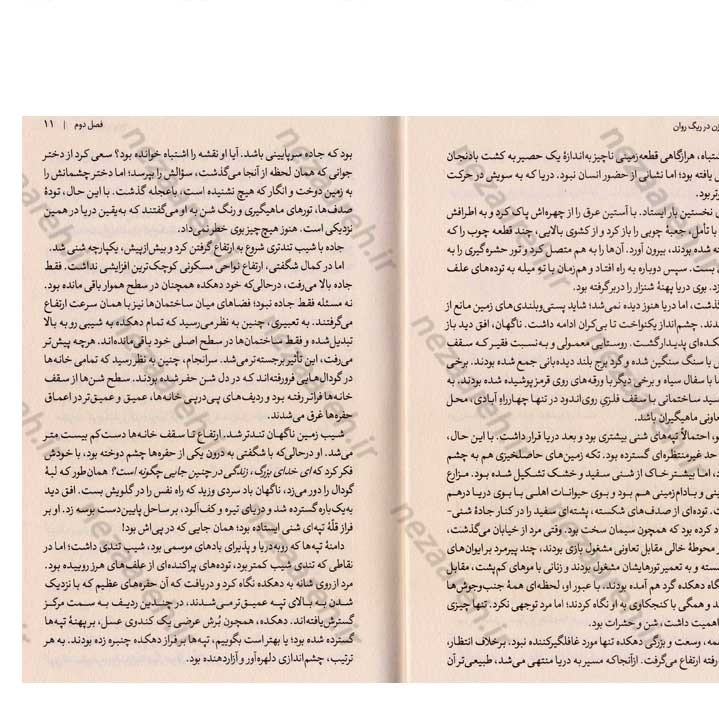 زن در ریگ روان
شتباه، هرازگاهی قطعه‌زمینی ناچیز به‌اندازهٔ یک حصیر به کشت بادنجان
ی یافته بود؛ اما نشانی از حضور انسان نبود. دریا که به سویش در حرکت
ور‌تر بود.
ی نخستین بار ایستاد. با آستین عرق را از چهره‌اش پاک کرد و به اطرافش
با تأمل، جعبهٔ چوبی را باز کرد و از کشوی بالایی، چند قطعه چوب را که
ه شده بودند، بیرون آورد. آن‌ها را به هم متصل کرد و تور حشره‌گیری را به
بست. سپس دوباره به راه افتاد و هم‌زمان با نو میله به توده‌های علف
زد. بوی دریا پهنهٔ شنزار را دربرگرفته بود.
گذشت، اما دریا هنوز دیده نمی‌شد؛ شاید پستی‌وبلندی‌های زمین مانع از
دند. چشم‌انداز یکنواخت تا بی‌کران ادامه داشت. ناگهان، افق دید باز
کده‌ای پدیدار گشت. روستایی معمولی و به‌نسبت فقیر که سقف
ش با سنگ سنگین شده و گرد برج بلند دیده‌بانی جمع شده بودند. برخی
ا با سفال سیاه و برخی دیگر با ورقه‌های روی قرمز پوشیده شده بودند. به
سید ساختمانی با سقف فلزی روی‌اندود در تنها چهارراهِ آبادی، محل
عاونی ماهیگیران باشد.
و، احتمالاً تپه‌های شنی بیشتری بود و بعد دریا قرار داشت. با این حال،
حد غیرمنتظره‌ای گسترده بود. تکه زمین‌های حاصلخیزی هم به چشم
د، اما بیشتر خاک از شنی سفید و خشک تشکیل شده بود. مزارع
ینی و بادام‌زمینی هم بود و بوی حیوانات اهلی با بوی دریا درهم
ت. توده‌ای از صدف‌های شکسته، پشته‌ای سفید را در کنار جادهٔ شنی-
اد کرده بود که همچون سیمان سخت بود. وقتی مرد از خیابان می‌گذشت،
ر محوطهٔ خالی مقابل تعاونی مشغول بازی بودند، چند پیرمرد بر ایوان‌های
سسته و به تعمیر تورهایشان مشغول بودند و زنانی با موهای کم‌پشت، مقابل
گاه دهکده گرد هم آمده بودند. با عبور او، لحظه‌ای همهٔ جنب‌وجوش‌ها
د و همگی با کنجکاوی به او نگاه کردند؛ اما مرد توجهی نکرد. تنها چیزی
اهمیت داشت، شن و حشرات بود.
مه، وسعت و بزرگی دهکده تنها مورد غافلگیرکننده نبود. برخلاف انتظار،
رفته ارتفاع می‌گرفت. از آنجا که مسیر به دریا منتهی می‌شد، طبیعی‌تر آن
فصل دوم | ۱۱
بود که جاده سرپایینی باشد. آیا او نقشه را اشتباه خوانده بود؟ سعی کرد از دختر
جوانی که همان لحظه از آنجا می‌گذشت، سؤالش را بپرسد؛ اما دختر چشمانش را
به زمین دوخت و انگار که هیچ نشنیده است، باعجله گذشت. با این حال، تودهٔ
صدف‌ها، تورهای ماهیگیری و رنگ شن به او می‌گفتند که به‌یقین دریا در همین
نزدیکی است. هنوز هیچ‌چیز بوی خطر نمی‌داد.
جاده با شیب تندتری شروع به ارتفاع گرفتن کرد و بیش‌ازپیش، یکپارچه شنی شد.
اما در کمال شگفتی، ارتفاع نواحی مسکونی کوچک‌ترین افزایشی نداشت. فقط
جاده بالا می‌رفت، درحالی‌که خود دهکده همچنان در سطح هموار باقی مانده بود.
نه مسئله فقط جاده نبود؛ فضاهای میان ساختمان‌ها نیز با همان سرعت ارتفاع
می‌گرفتند. به تعبیری، چنین به نظر می‌رسید که تمام دهکده به شیبی رو به بالا
تبدیل شده و فقط ساختمان‌ها در سطح اصلی خود باقی‌مانده‌اند. هرچه پیش‌تر
می‌رفت، این تأثیر برجسته‌تر می‌شد. سرانجام، چنین به نظر رسید که تمامی خانه‌ها
در گودال‌هایی فرورفته‌اند که در دل شن حفر شده بودند. سطح شن‌ها از سقف
خانه‌ها فراتر رفته بود و ردیف‌های پی‌درپی خانه‌ها، عمیق و عمیق‌تر در اعماق
حفره‌ها غرق می‌شدند.
شیب زمین ناگهان تندتر شد. ارتفاع تا سقف خانه‌ها دست‌کم بیست متر
می‌شد. او درحالی‌که با شگفتی به درون یکی از حفره‌ها چشم دوخته بود، با خودش
فکر کرد که ای خدای بزرگ، زندگی در چنین جایی چگونه است؟ همان‌طور که لبهٔ
گودال را دور می‌زد، ناگهان باد سردی وزید که راه نفس را در گلویش بست. افق دید
به‌یک‌باره گسترده شد و دریای تیره و کف‌آلود، بر ساحل پایین‌دست بوسه زد. او بر
فراز قلهٔ تپه‌ای شنی ایستاده بود؛ همان جایی که در پی‌اش بود!
دامنهٔ تپه‌ها که روبه‌دریا و پذیرای بادهای موسمی بود، شیب تندی داشت؛ اما در
نقاطی که تندی شیب کمتر بود، توده‌های پراکنده‌ای از علف‌های هرز روییده بود.
مرد از روی شانه به دهکده نگاه کرد و دریافت که آن حفره‌های عظیم که با نزدیک
شدن به بالای تپه عمیق‌تر می‌شدند، در چندین ردیف به سمت مرکز
گسترش یافته‌اند. دهکده، همچون بُرش عرضی یک کندوی عسل، بر پهنهٔ تپه‌ها
گسترده شده بود؛ یا بهتر است بگوییم، تپه‌ها بر فراز دهکده چنبره زده بودند. به هر
ترتیب، چشم‌اندازی دلهره‌آور و آزاردهنده بود.